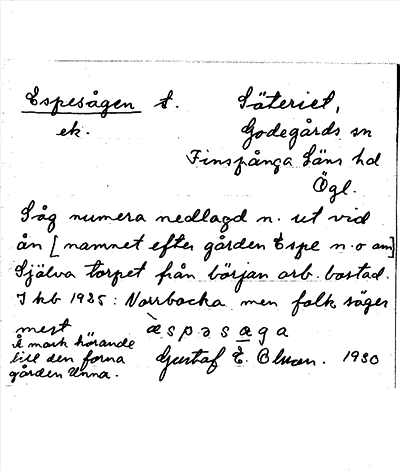 Espesågen t. Säteriet,
ek. Godegårds sn
Finspånga Läns hd
Ögl.
Såg numera nedlagd n. ut vid
ån [namnet efter gården Espe n.o om]
Själva torpet från början arb. bostad.
I kb 1925: Norrbacka men folk säger
mest æspəsæga
Å mark hörande
till den forna
gården Unna.
Gustaf E. Olsson. 1930